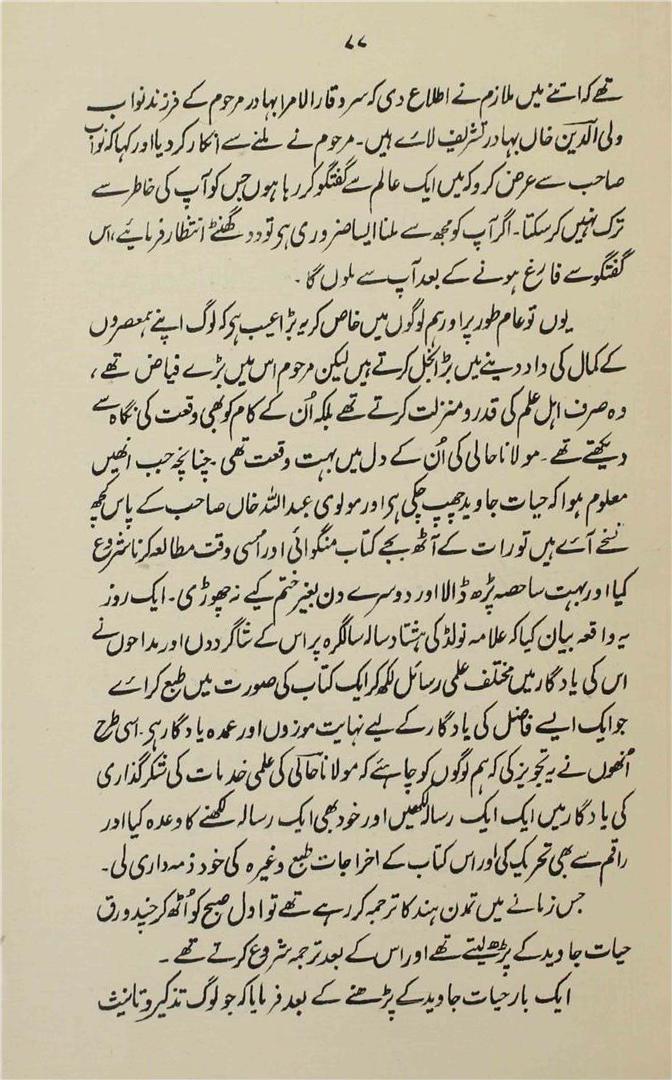 ۷۷
تھے کہ اتنے میں ملازم نے اطلاع دی کہ سر وقار الامرا بہادر مرحوم کے فرزند نواب
ولی الدین خاں بہادر تشریف لائے ہیں۔ مرحوم نے ملنے سے انکار کر دیا اور کہا کہ نواب
صاحب سے عرض کرو کہ میں ایک عالم سے گفتگو کر رہا ہوں جس کو آپ کی خاطر سے
ترک نہیں کر سکتا۔ اگر آپ کو مجھ سے ملنا ایسا ضروری ہی تو دو گھنٹے انتظار فرمایئے، اس
گفتگو سے فارغ ہونے کے بعد آپ سے ملوں گا۔
یوں تو عام طور پر اور ہم لوگوں میں خاص کر یہ بڑا عیب ہی کہ لوگ اپنے ہمعصروں
کے کمال کی داد دینے میں بڑا بخل کرتے ہیں لیکن مرحوم اس میں بڑے فیاض تھے،
وہ صرف اہل علم کی قدر و منزلت کرتے تھے بلکہ اُن کے کام کو بھی وقعت کی نگاہ سے
دیکھتے تھے۔ مولانا حالی کی اُن کے دل میں بہت وقعت تھی۔ چنانچہ جب انھیں
معلوم ہوا کہ حیات جاوید چھپ چکی ہی اور مولوی عبداللہ خاں صاحب کے پاس کچھ
نسخے آئے ہیں تو رات کے آٹھ بجے کتاب منگوائی اور اُسی وقت مطالعہ کرنا شروع
کیا اور بہت سا حصہ پڑھ ڈالا اور دوسرے دن بغیر ختم کیے نہ چھوڑی۔ ایک روز
یہ واقعہ بیان کیا کہ علامہ نولڈ کی ہشتاد سالہ سالگرہ پر اس کے شاگردوں اور مداحوں نے
اس کی یادگار میں مختلف علمی رسائل لکھ کر ایک کتاب کی صورت میں طبع کرائے
جو ایک ایسے فاضل کی یادگار کے لیے نہایت موزوں اور عمدہ یادگار ہی۔ اسی طرح
اُنھوں نے یہ تجویز کی کہ ہم لوگوں کو چاہئے کہ مولانا حالی کی علمی خدمات کی شکر گذاری
کی یادگار میں ایک ایک رسالہ لکھیں اور خود بھی ایک رسالہ لکھنے کا وعدہ کیا اور
راقم سے بھی تحریک کی اور اس کتاب کے اخراجات طبع وغیرہ کی خود ذمہ داری لی۔
جس زمانے میں تمدن ہند کا ترجمہ کر رہے تھے تو اول صبح کو اُٹھ کر چند ورق
حیات جاوید کے پڑھ لیتے تھے اور اس کے بعد ترجمہ شروع کرتے تھے۔
ایک بار حیات جاوید کے پڑھنے کے بعد فرمایا کہ جو لوگ تذکیر و تانیث